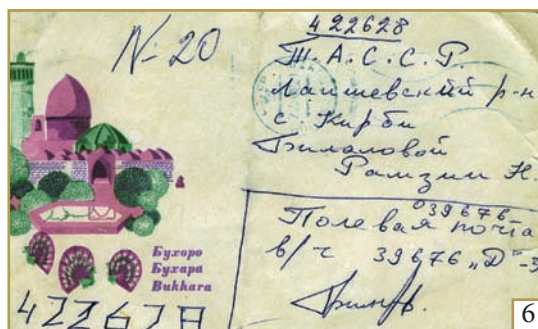 N-20
422628
Т.А.С.С.Р.
Лаишевский р-н
с. Кирби
Билаловой
Рамзии Н.
039676
Полевая почта
в/ч 39676 „Д"-3
Бухоро
Бухара
Bukhara
422628
6